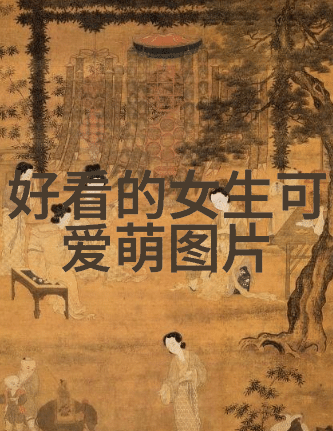 好看的女生可
爱萌图片